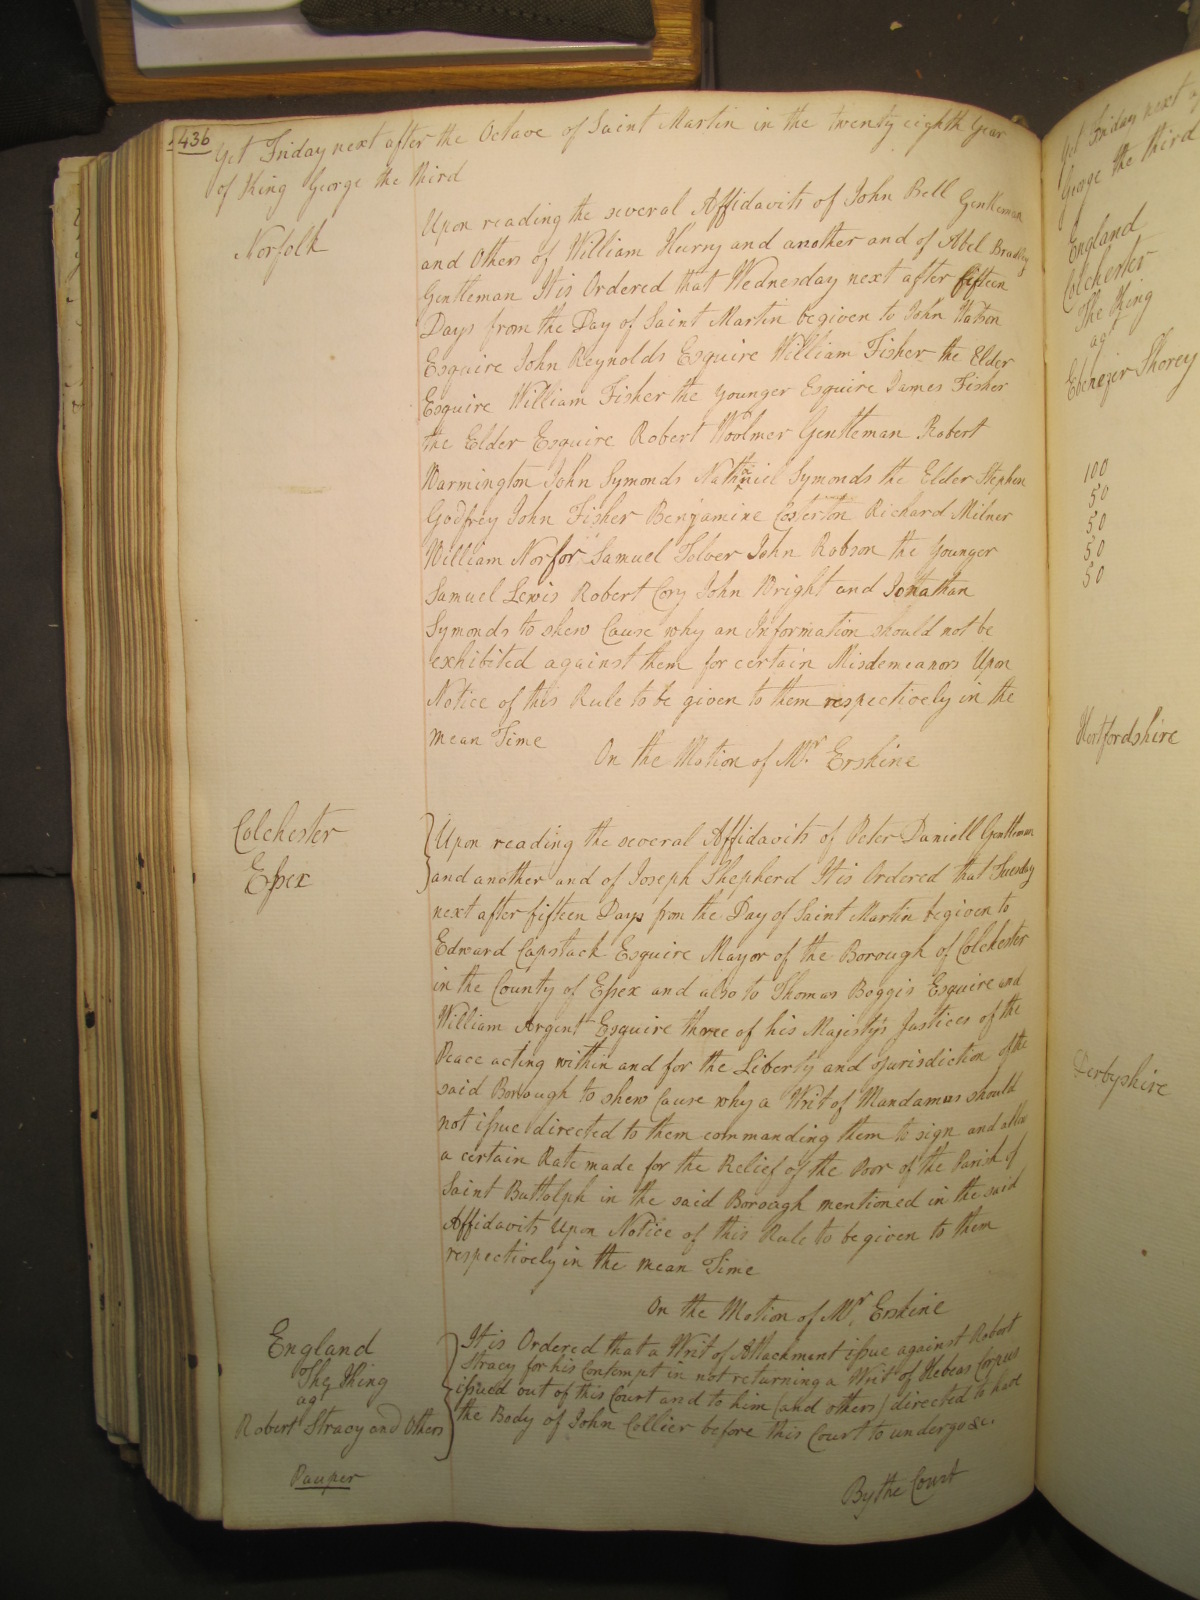 436
Yet Friday next after the Octave of Saint Martin in the twenty eighth Year
of King George the third
Norfolk
Upon reading the several Affidavits of John Bell Gentleman
and Others of William Hurry and another and of Abel Bradley
Gentleman It is Ordered that Wednesday next after fifteen
Days from the Day of Saint Martin be given to John Watson
Esquire John Reynolds Esquire William Fisher the Elder
Esquire William Fisher the Younger Esquire James Fisher
the Elder Esquire Robert Woolmer Gentleman Robert
Warmington John Symonds Nathaniel Symonds the Elder Stephen
Godfrey John Fisher Benjamine Costerton Richard Milner
William Norfor Samuel Tolver John Robson the Younger
Samuel Lewis Robert Cory John Wright and Jonathan
Symonds to shew Cause why an Information should not be
exhibited against them for certain Misdemeanors Upon
Notice of this Rule to be given to them respectively in the
mean Time
On the Motion of Mr. Erskine
Colchester
Essex
Upon reading the several Affidavits of Peter Daniell Gentleman
and another and of Joseph Shepherd It is Ordered that Tuesday
next after fifteen Days from the Day of Saint Martin be given to
Edward Capstack Esquire Mayor of the Borough of Colchester
in the County of Essex and also to Thomas Boggis Esquire and
William Argent Esquire three of his Majesty's Justices of the
Peace acting within and for the Liberty and Jurisdiction of the
said Borough to shew Cause why a Writ of Mandamus should
not issue directed to them commanding them to sign and allow
a certain Rate made for the Relief of the Poor of the Parish of
Saint Buttolph in the said Borough mentioned in the said
Affidavits Upon Notice of this Rule to be given to them
respectively in the mean Time
On the Motion of Mr. Erskine
England
The King
agt
Robert Stracy and Others
Pauper
It is Ordered that a Writ of Attachment issue against Robert
Stracy for his Contempt in not returning a Writ of Hebeas Corpus
issued out of this Court and to him (and others) directed to have
the Body of John Collier before this Court to undergo &c.
By the Court
Yet Friday next
George the third
England
Colchester
The King
agt
Ebenezer Thorey
100
50
50
50
50
Hertfordshire
Derbyshire